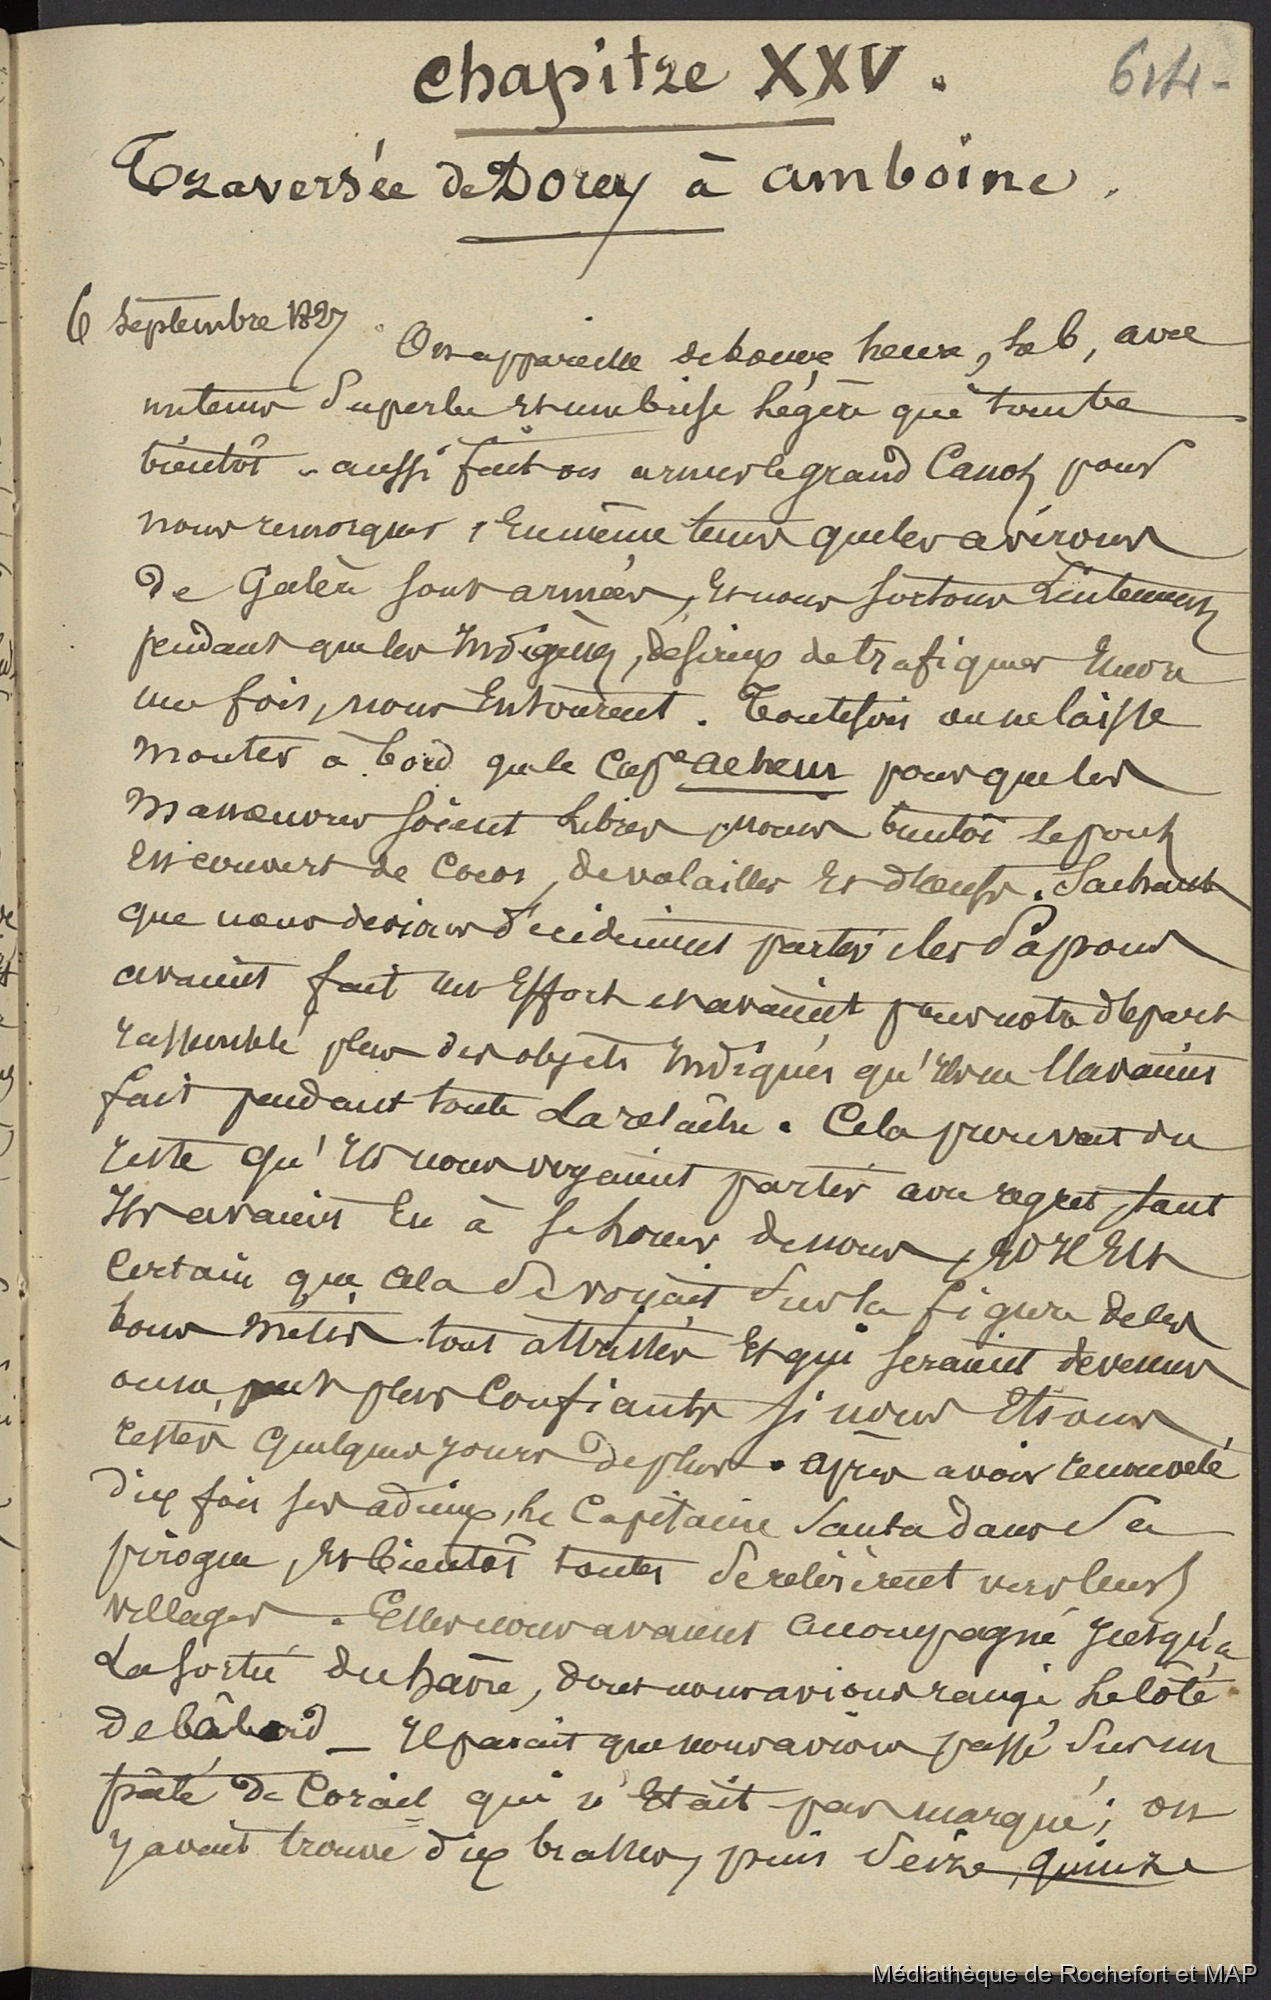 Chapitre XXV.
614-
Traversée de Dorey à Amboine.
6 Septembre 1827
On appareille de bonne heure, le 6, avec
un tems superbe et une brise légère qui tombe
bientôt - aussi fait on armer le grand Canot pour
nous remorquer, en même tems que les avirons
de Galère sont armés, et nous sortons lentement
pendant que les Indigènes, désireux de trafiquer encore
une fois, nous entourent. Toutefois on ne laisse
monter à bord que le Cape pour que les
manœuvres soient libres, bientôt le pont
est couvert de Cocos, de volailles et d'œufs. Sachant
que nous devions décidément partir, les Papous
avaient fait un effort et avaient pour notre départ
rassemblé plus des objets Indiqués qu'ils ne l'avaient
fait pendant toute la relâche. Cela prouvait du
reste qu'ils nous voyaient partir avec regret, tant
ils avaient eu à se louer de nous, et il est
certain que cela se voyait sur la figure de ces
tout attristés et qui seraient devenus
on ne peut plus confiants si nous étions
restés quelques jours de plus. Après avoir renouvelé
dix fois ses adieux, le Capitaine sauta dans sa
pirogue, et bientôt toutes se retirèrent vers leurs
villages. Elles nous avaient accompagné jusqu'à
la sortie du havre, dont nous avions rangé le côté
de bâbord _ Il parait que nous avions passé sur un
pâté de Corail qui n'était pas marqué; on
y avait trouvé dix brasses, puis seize, quinze
Médiathèque de Rochefort et MAP